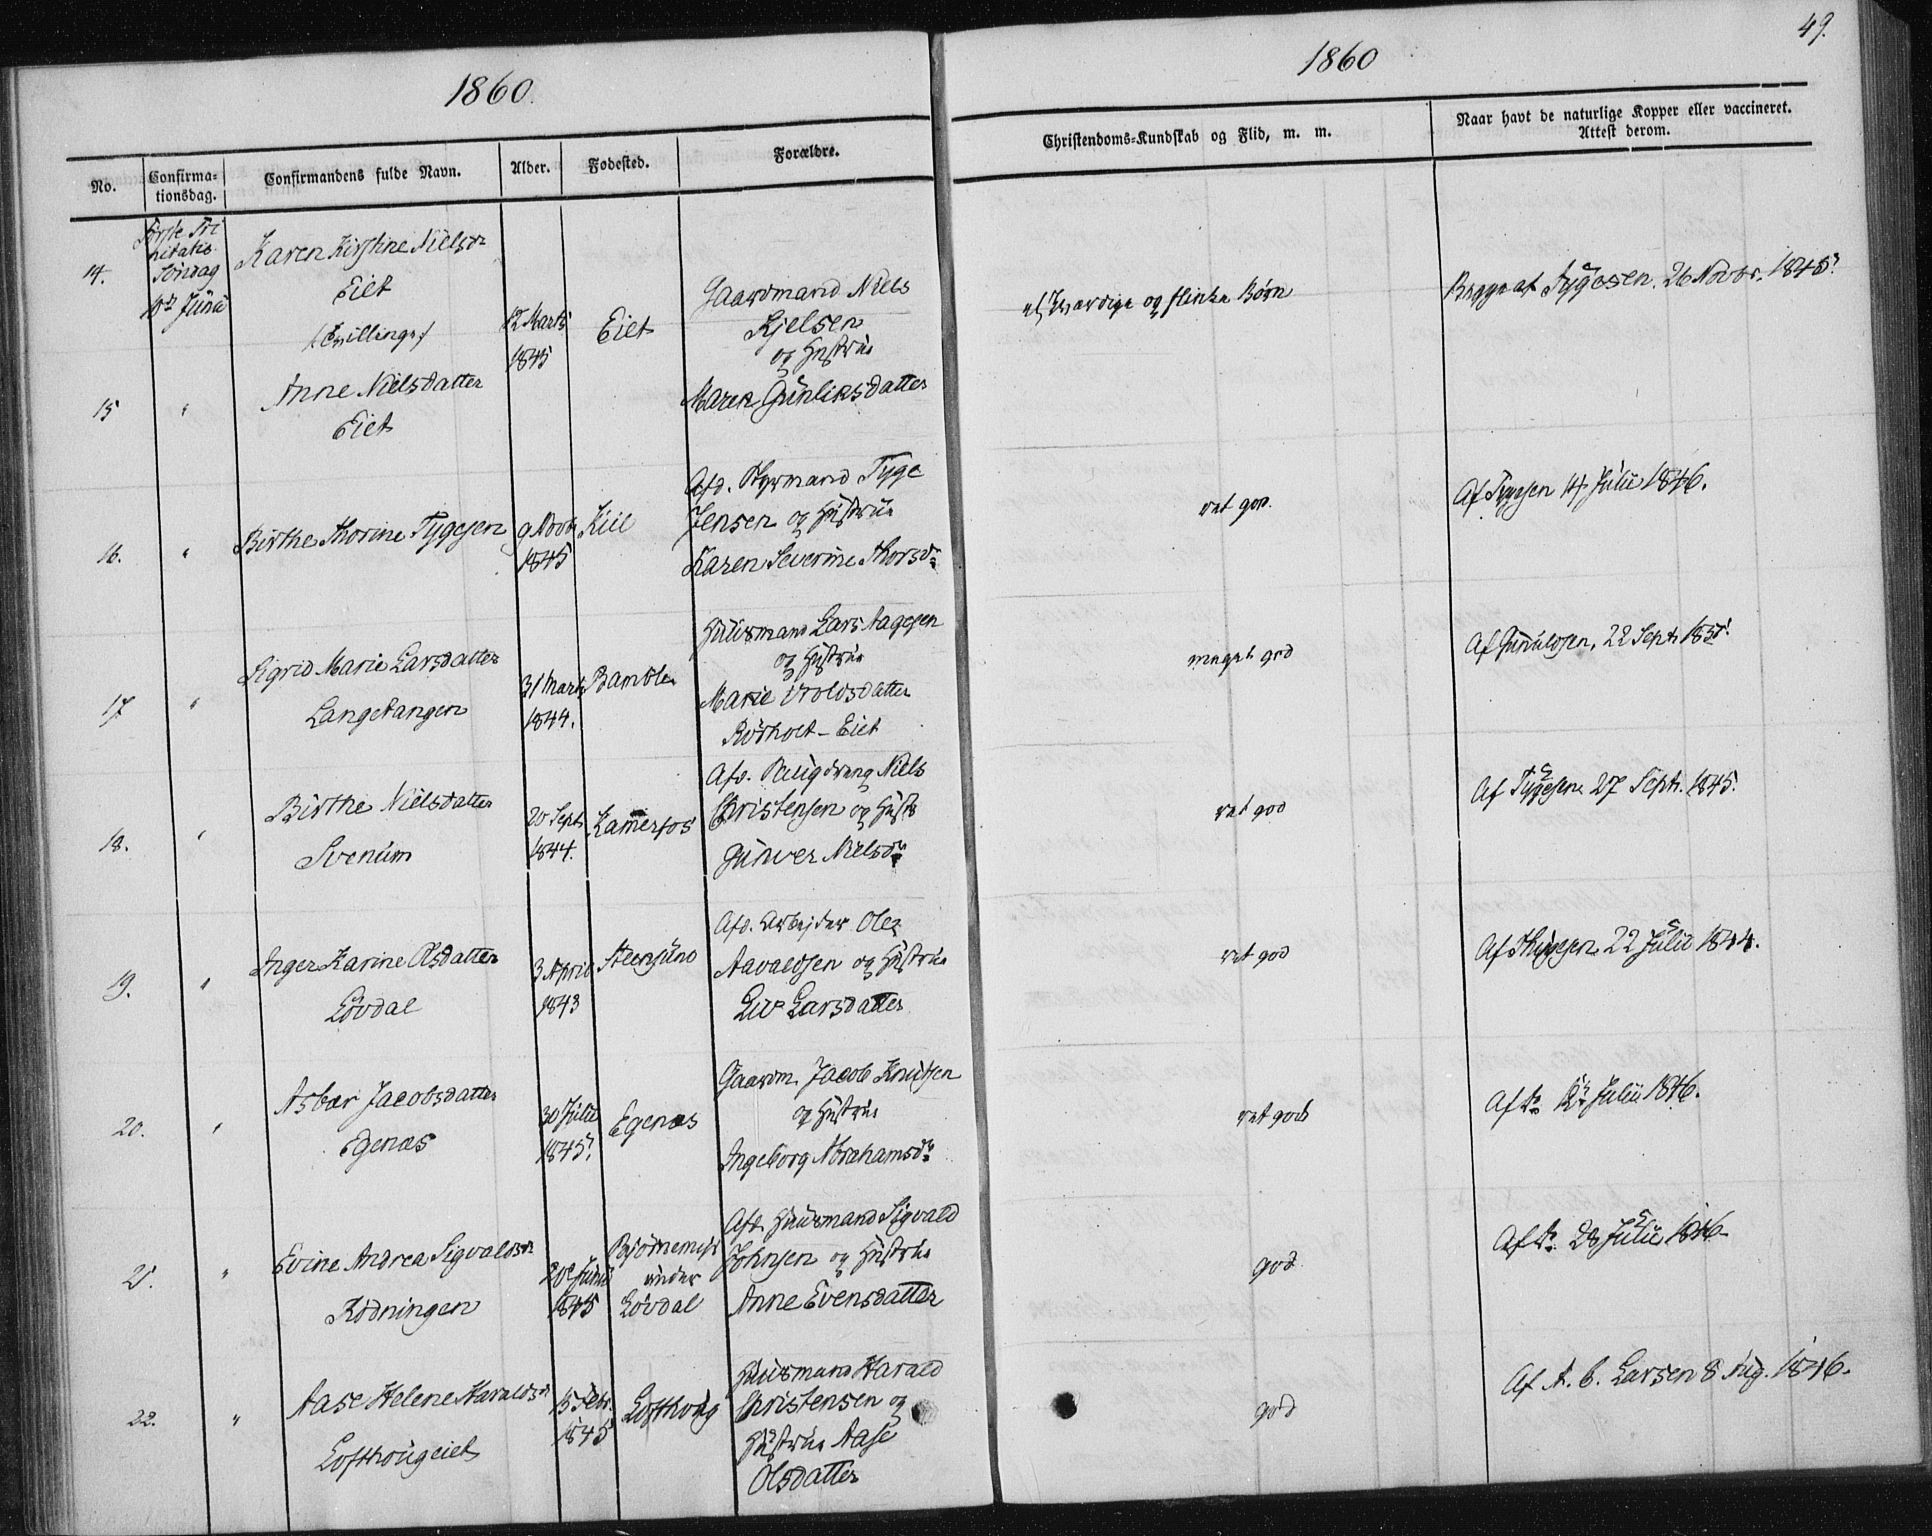 1860.
1860
49.
No.
Confirma-
tionsdag.
Confirmandens fulde Navn.
Alder.
Fødested.
Forældre.
Christendoms-Kundskab og Flid, m. m.
Naar havt de naturlige Kopper eller vaccineret.
Attest derom.
14.
Søndag
Juni
Karen Kirstine Nielsdr
Eiet
12 Marts
1845
Eiet
Gaardmand Niels
Kjelsen
og Hustrue
Maren Gunliksdatter
og flinke Børn
Begge af Tygesen. 26 Novbr. 1845.
15
"
Anne Nielsdatter
Eiet
16.
"
Birthe Thorine Tygesen
9 Novbr
1845
Kiil
Afd. Styrmand Tyge
Jensen og Hustrue
Karen Severine Thorsdr
ret god.
Af Tygesen 14 Julii 1846.
17
"
Sigrid Marie Larsdatter
Langetangen
31 Marts
1844.
Bamble
Huusmand Lars Aagesen
og Hustrue
Marie
Rörholt-Eiet
meget god
22 Septr
18.
"
Birthe Nielsdatter
Svenum
20 Septr
1844.
Kamerfos
Afd. Niels
Christensen og Hustr
Gunver Nielsdr
ret god
Af Tygesen 27 Septr. 1845.
19.
"
Inger Karine Olsdatter
Lövdal
3 April
1843
Steensund
Afd. Arbejder Ole
Aavaldsen og Hustrue
Liv Larsdatter
ret god
Af Thygesen 22 Julii 1844.
20.
"
Asbør Jacobsdatter
Egenæs
30 Julii
1845.
Egenæs
Gaardm. Jacob Knutsen
og Hustrue
Ingeborg Abrahamsdr
ret god
Af do 12 Julii 1846.
21.
"
Evine Andrea Sigvaldsdr
Rödningen
Juni
1845
under
Lövdal
Afd. Huusmand Sigvald
Johnsen og Hustrue
Anne Evensdatter
god
Af do 28 Julii 1846.
22.
"
Aase Helene Haraldsdr
Lofthougeiet
15 Febr.
1845
Lofthoug
Huusmand Harald
Christensen og
Hustrue Aase
Olsdatter
god
Af A. C. Larsen 8 Aug. 1846.